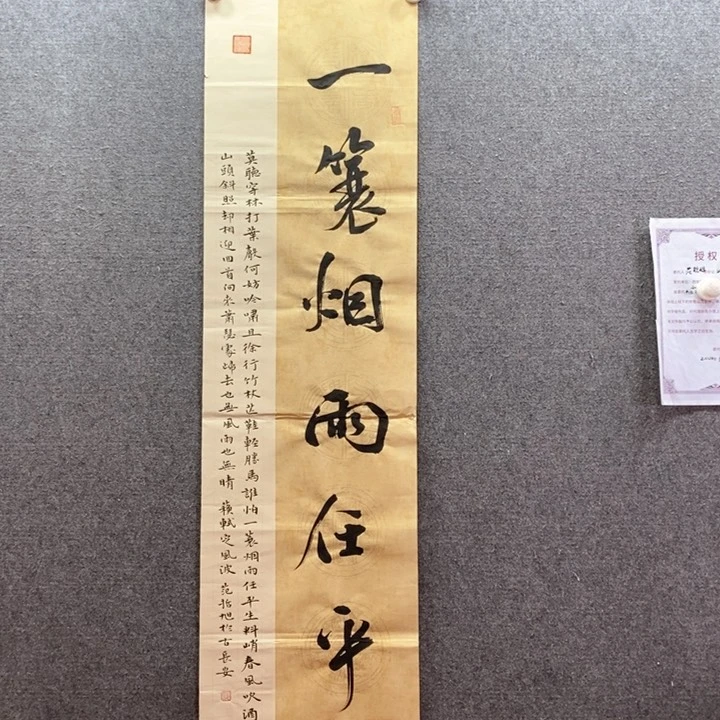 一簑烟雨任平
莫聽穿林打葉聲何妨吟嘯且徐行竹杖芒鞋輕勝馬誰怕一蓑烟雨任平生料峭春風吹酒
山頭斜照却相迎回首向来蕭瑟處歸去也無風雨也無晴 蘇軾定風波 范旭於古長安
授权